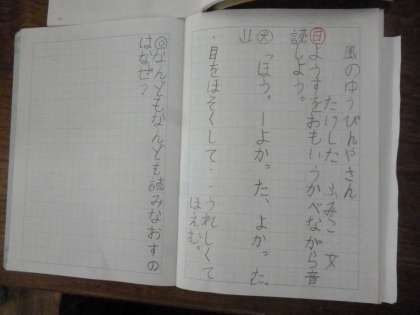 風のゆうびんやさん
たけした ふみこ 文
目 ようすをおもいうかべながら音
読しよう。
「ほう。ーよかった、よかった。
・目をほそくして・・うれしくて
ほえむ。
◎なんどもなんども読みなおすの
はなぜ?